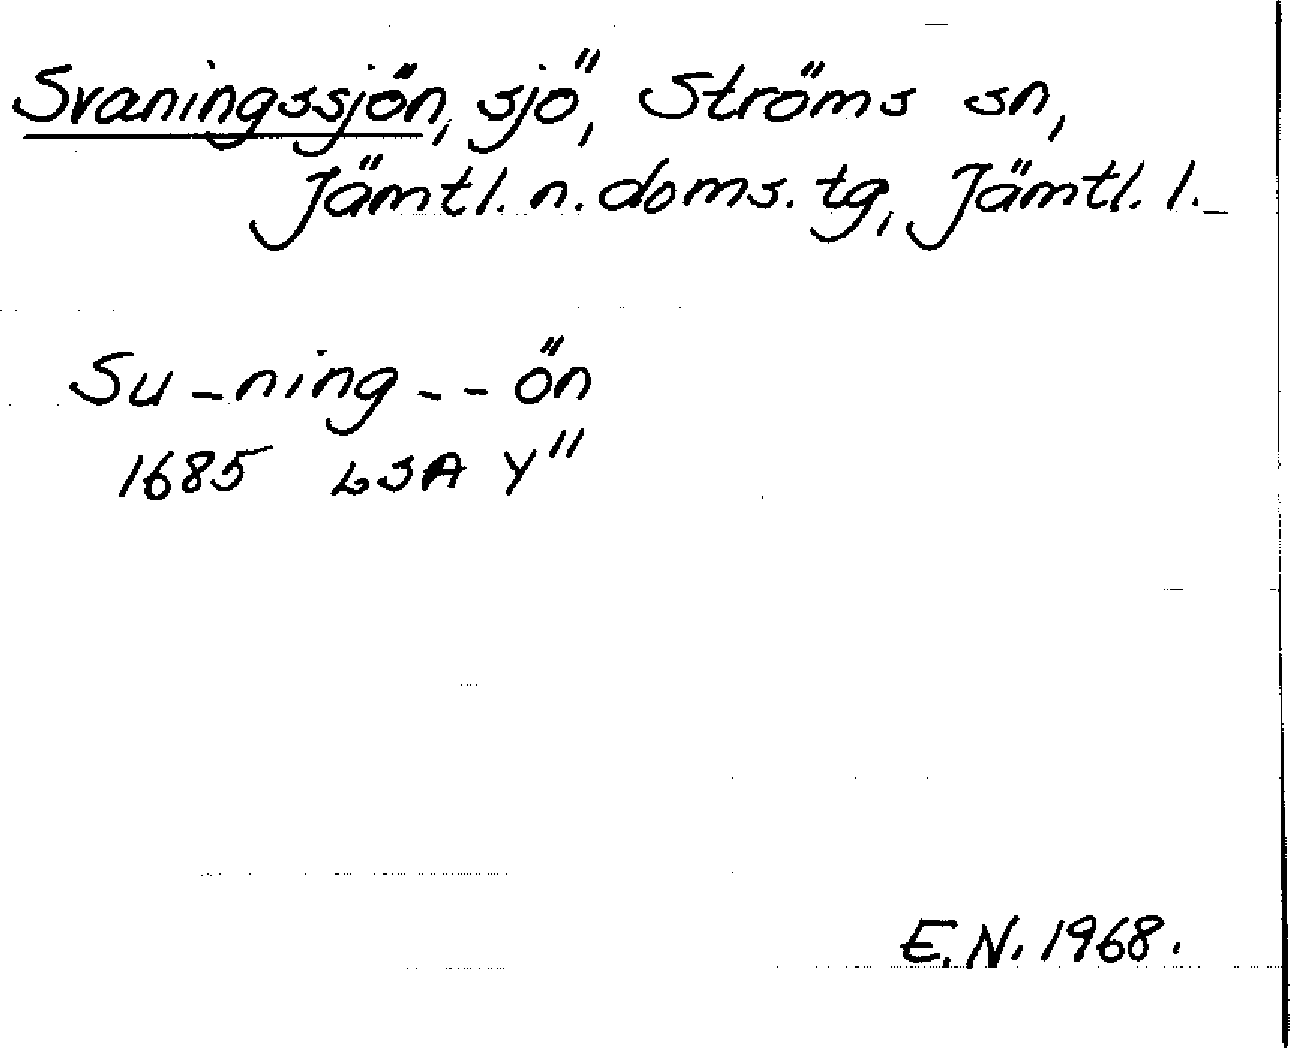 Svaningssjön, sjö, Ströms sn,
Jämtl. n. doms. tg, Jämtl. l.
Su_ning_ _ ön
1685 LSA Y"
E.N. 1968.